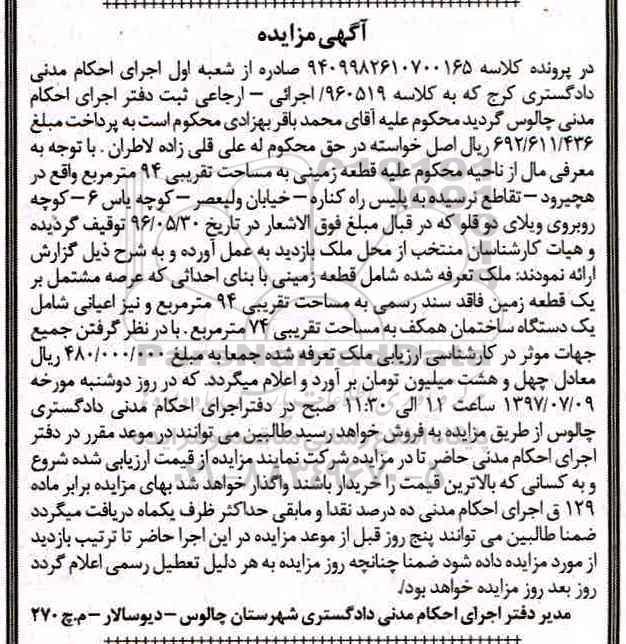 آگهی مزایده
در پرونده کلاسه ۹۴۰۹۹۸۲۶۱۰۷۰۰۱۶۵ صادره از شعبه اول اجرای احکام مدنی
دادگستری کرج که به کلاسه ۹۶۰۵۱۹/ اجرائی – ارجاعی ثبت دفتر اجرای احکام
مدنی چالوس گردید محکوم علیه آقای محمد باقر بهزادی محکوم است به پرداخت مبلغ
۶۹۲/۶۱۱/۴۳۶ ریال اصل خواسته در حق محکوم له علی قلی زاده لاطران . با توجه به
معرفی مال از ناحیه محکوم علیه قطعه زمینی به مساحت تقریبی ۹۴ مترمربع واقع در
هچیرود – تقاطع نرسیده به پلیس راه کناره – خیابان ولیعصر – کوچه یاس ۶ – کوچه
روبروی ویلای دو قلو که در قبال مبلغ فوق الاشعار در تاریخ ۹۶/۰۵/۳۰ توقیف گردیده
و هیات کارشناسان منتخب از محل ملک بازدید به عمل آورده و به شرح ذیل گزارش
ارائه نمودند: ملک تعرفه شده شامل قطعه زمینی با بنای احداثی که عرصه مشتمل بر
یک قطعه زمین فاقد سند رسمی به مساحت تقریبی ۹۴ مترمربع و نیز اعیانی شامل
یک دستگاه ساختمان همکف به مساحت تقریبی ۷۴ مترمربع . با در نظر گرفتن جمیع
جهات موثر در کارشناسی ارزیابی ملک تعرفه شده جمعا به مبلغ ۴۸۰/۰۰۰/۰۰۰ ریال
معادل چهل و هشت میلیون تومان بر آورد و اعلام میگردد. که در روز دوشنبه مورخه
۱۳۹۷/۰۷/۰۹ ساعت ۱۱ الی ۱۱:۳۰ صبح در دفتراجرای احکام مدنی دادگستری
چالوس از طریق مزایده به فروش خواهد رسید طالبین می توانند در موعد مقرر در دفتر
اجرای احکام مدنی حاضر تا در مزایده شرکت نمایند مزایده از قیمت ارزیابی شده شروع
و به کسانی که بالاترین قیمت را خریدار باشند واگذار خواهد شد بهای مزایده برابر ماده
۱۲۹ ق اجرای احکام مدنی ده درصد نقدا و مابقی حداکثر ظرف یکماه دریافت میگردد
ضمنا طالبین می توانند پنج روز قبل از موعد مزایده در این اجرا حاضر تا ترتیب بازدید
از مورد مزایده داده شود ضمنا چنانچه روز مزایده به هر دلیل تعطیل رسمی اعلام گردد
روز بعد روز مزایده خواهد بود/.
مدیر دفتر اجرای احکام مدنی دادگستری شهرستان چالوس – دیوسالار – م.چ ۲۷۰